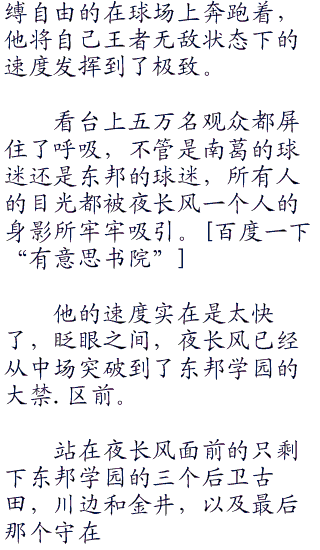 缚自由的在球场上奔跑着，
他将自己王者无敌状态下的
速度发挥到了极致。
看台上五万名观众都屏
住了呼吸，不管是南葛的球
迷还是东邦的球迷，所有人
的目光都被夜长风一个人的
身影所牢牢吸引。[百度一下
“有意思书院”]
他的速度实在是太快
了，眨眼之间，夜长风已经
从中场突破到了东邦学园的
大禁.区前。
站在夜长风面前的只剩
下东邦学园的三个后卫古
田，川边和金井，以及最后
那个守在